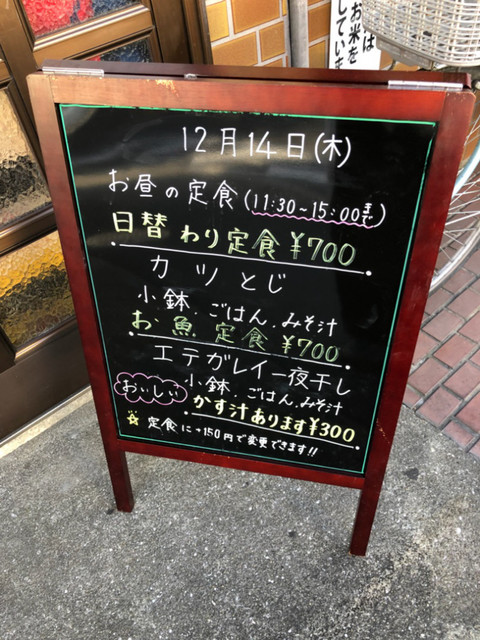 12月14日(木)
お昼の定食(11:30~15:00まで)
日替わり定食¥700
カツとじ
小鉢.ごはん.みそ汁
お魚定食¥700
エテガレイ一夜干し
小鉢.ごはん.みそ汁
おいしい
かす汁あります¥300
☆定食に→150円で変更できます!!
お米を
しています
は